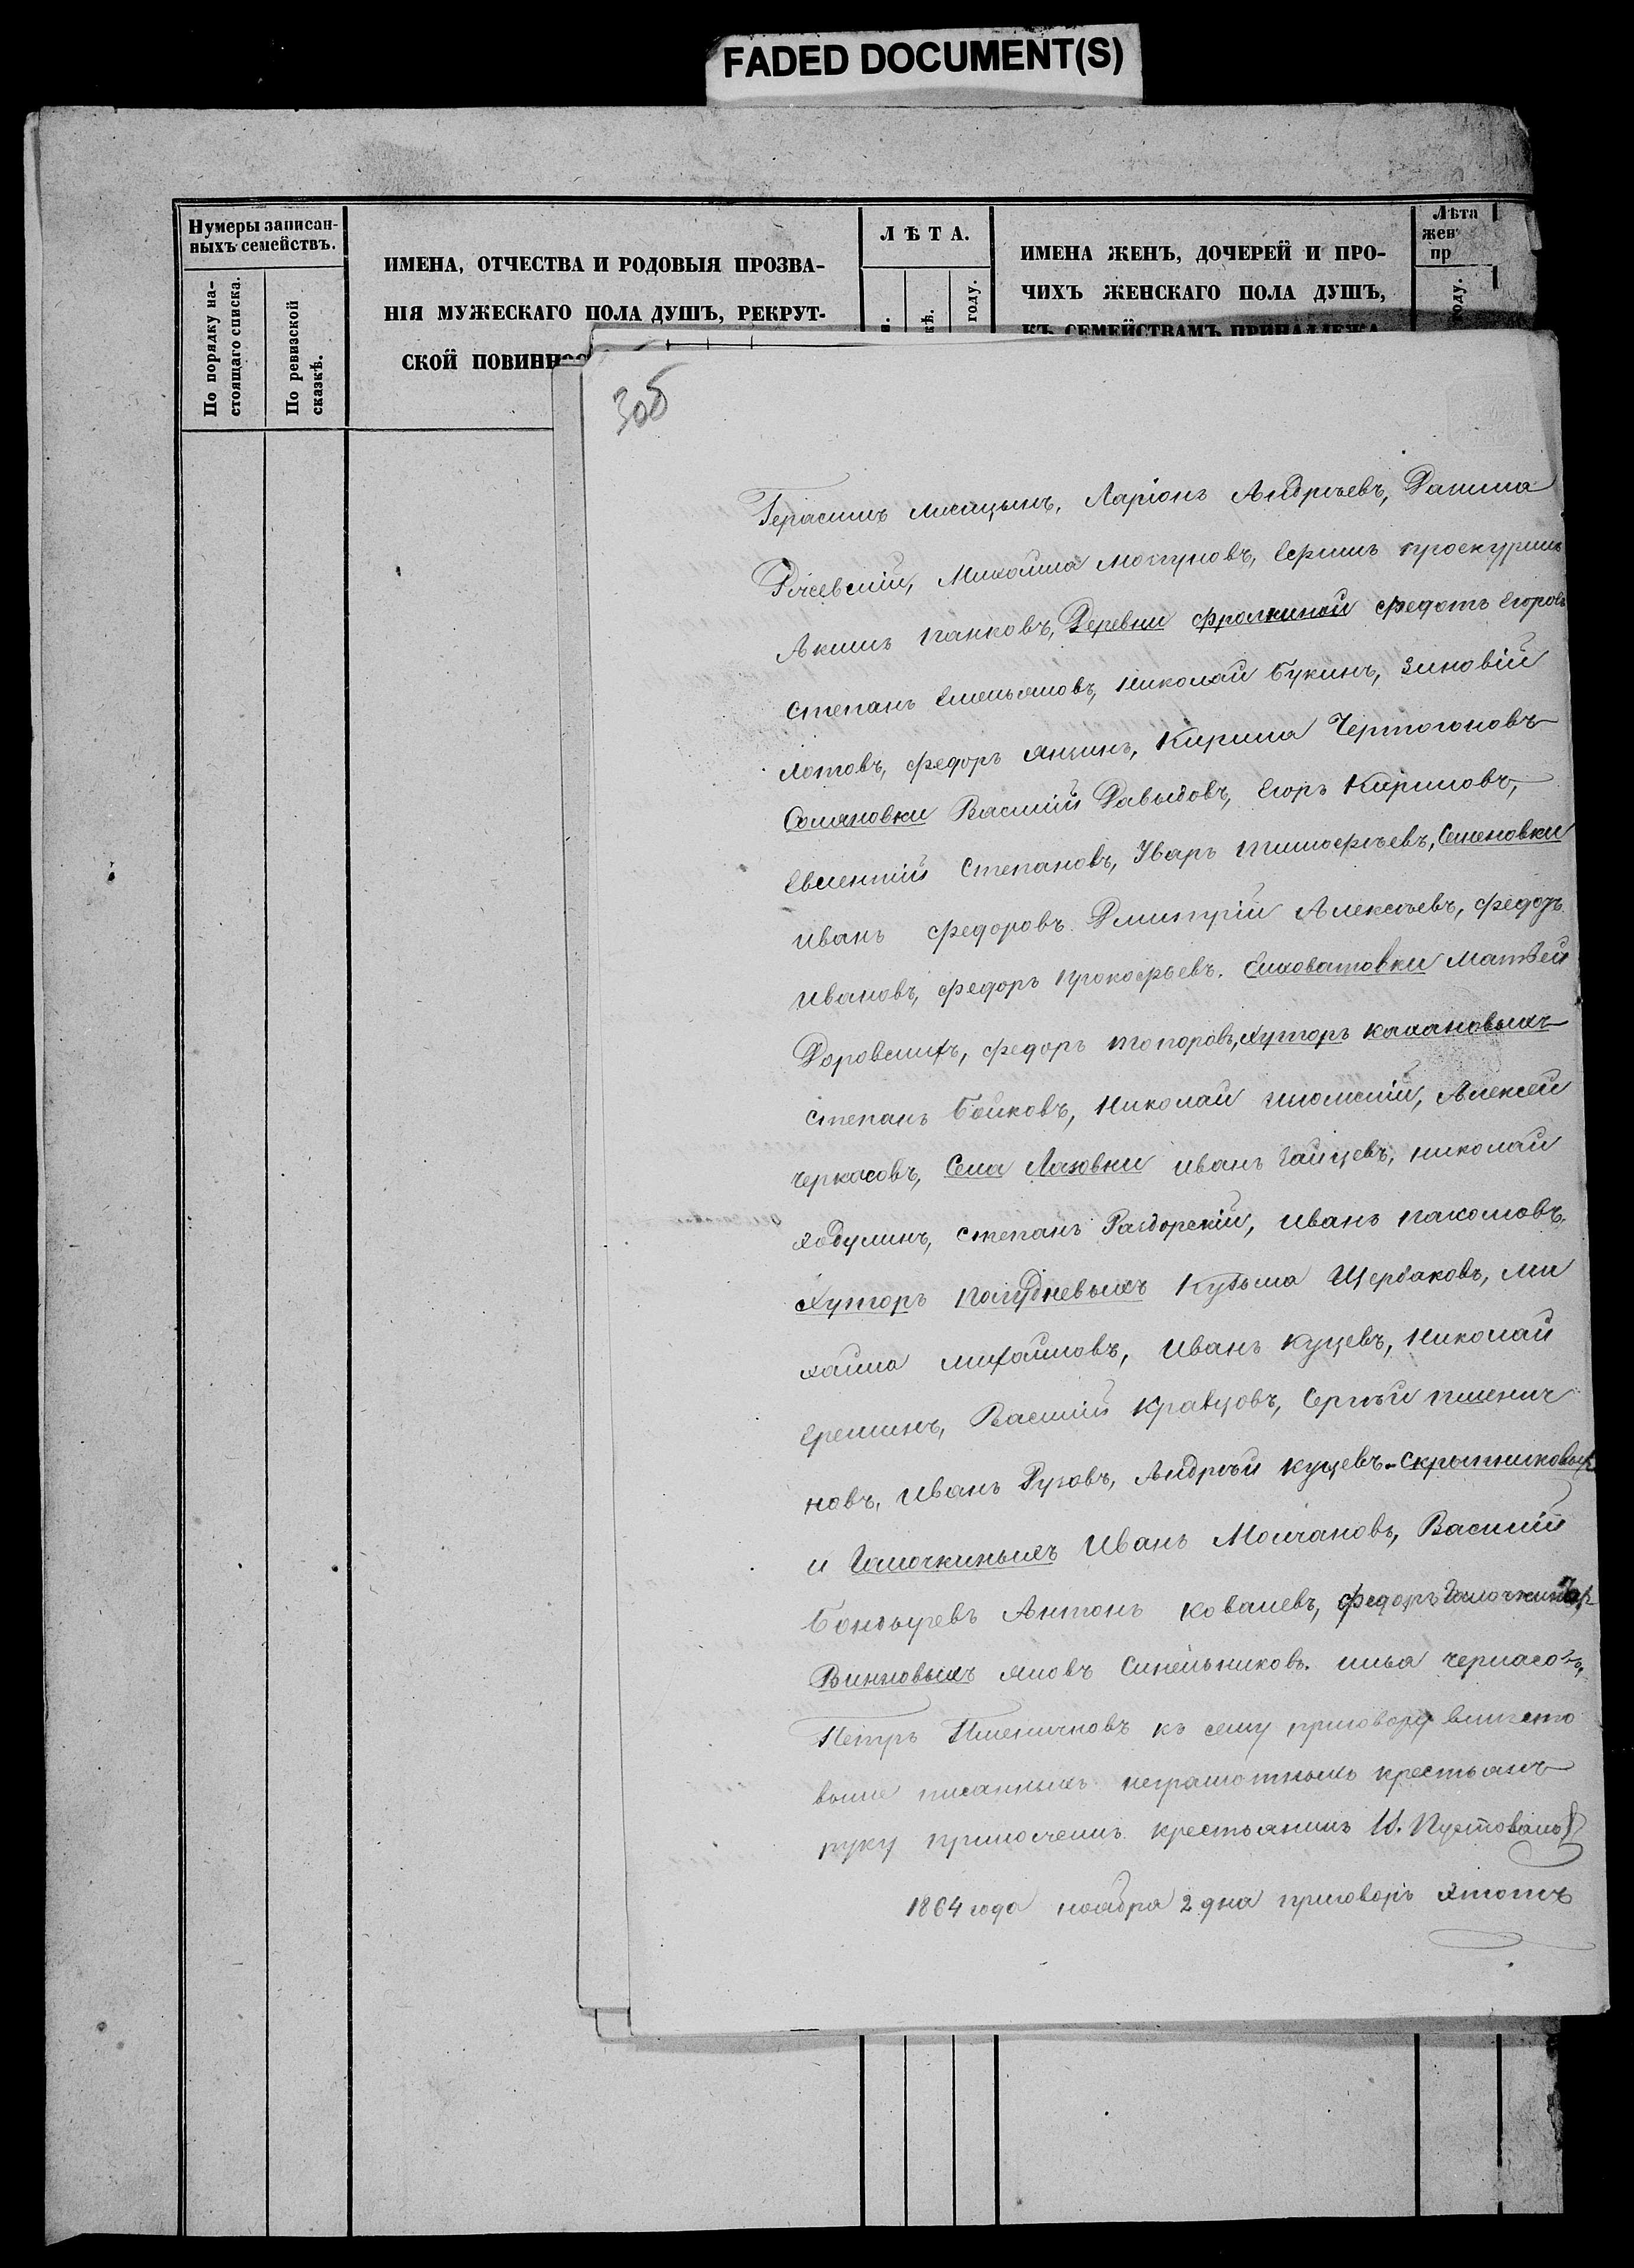 FADED DOCUMENT(S)
Нумеры записан-
ныхъ семействъ.
По порядку на-
стоящаго списка.
По ревизской
сказкѣ.
ИМЕНА, ОТЧЕСТВА И РОДОВЫЯ ПРОЗВА-
НІЯ МУЖЕСКАГО ПОЛА ДУШЪ, РЕКРУТ-
СКОЙ ПОВИННОС
ЛѢТА.
году.
ИМЕНА ЖЕНЪ, ДОЧЕРЕЙ И ПРО-
ЧИХЪ ЖЕНСКАГО ПОЛА ДУШЪ,
КЪ СЕМЕЙСТВАМЪ ПРИНАДЛЕЖА
Лѣта
жен
пр
оду.
306
Герасимъ Лисицынъ, Ларіонъ Андрѣевъ, Данила
Михайла Ефимъ Проскурин
Акимъ Панковъ, Деревни Фролкиной Федотъ Егоровъ
Степанъ Емельяновъ, Николай Букинъ, Зиновій
Лотовъ, Федоръ Янинъ, Кирила Чертогоновъ
Василій Давыдовъ, Егоръ Кириловъ,
Степановъ, Уваръ Тимофѣевъ, Семеновки
Иванъ Федоровъ Дмитрій Алексѣевъ, Федоръ
Ивановъ, Федоръ Прокофьевъ. Елховатовки Матвей
Доровскихъ, Федоръ Топоровъ, хуторъ
Степанъ Бойковъ, Николай Алексей
Черкасовъ, Села Лазовки Иванъ Николай
Ходулинъ, Степанъ Раздорскій, Иванъ Пахомовъ,
Хуторъ Полудневыхъ Кузьма Щербаковъ, Ми
хайла Михайловъ, Иванъ Куцевъ, Николай
Ереминъ, Василій Кравцовъ, Сергѣй Пшенич
новъ, Иванъ Рузовъ, Андрѣй Куцевъ. Скрыпниковыхъ
и Галочкиныхъ Иванъ Молчановъ, Василій
Антонъ Ковалевъ, Федоръ Галочкинъ,
Винковыхъ Яковъ Синельниковъ. Илья Черкасовъ,
Петръ Пшеничновъ къ сему приговору вмѣсто
выше писанныхъ неграмотныхъ крестьянъ
руку приложилъ крестьянинъ И. Пустоваловъ
1864 года ноября 2 дня приговоръ этотъ